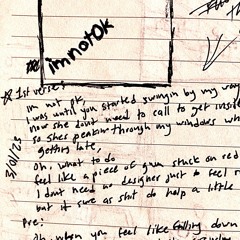 im not ok
1st verse:
im not ok,
I was until you started swingin by my way
now she dont need to call to get insi
so she peakin through my windows wh
getting late,
Oh, what to do
feel like a piece of gum stuck on red
I dont need no designer just to feel n
but it sure as shit do help a little
3/01/23
Pre:
Oh, when you feel like falling down